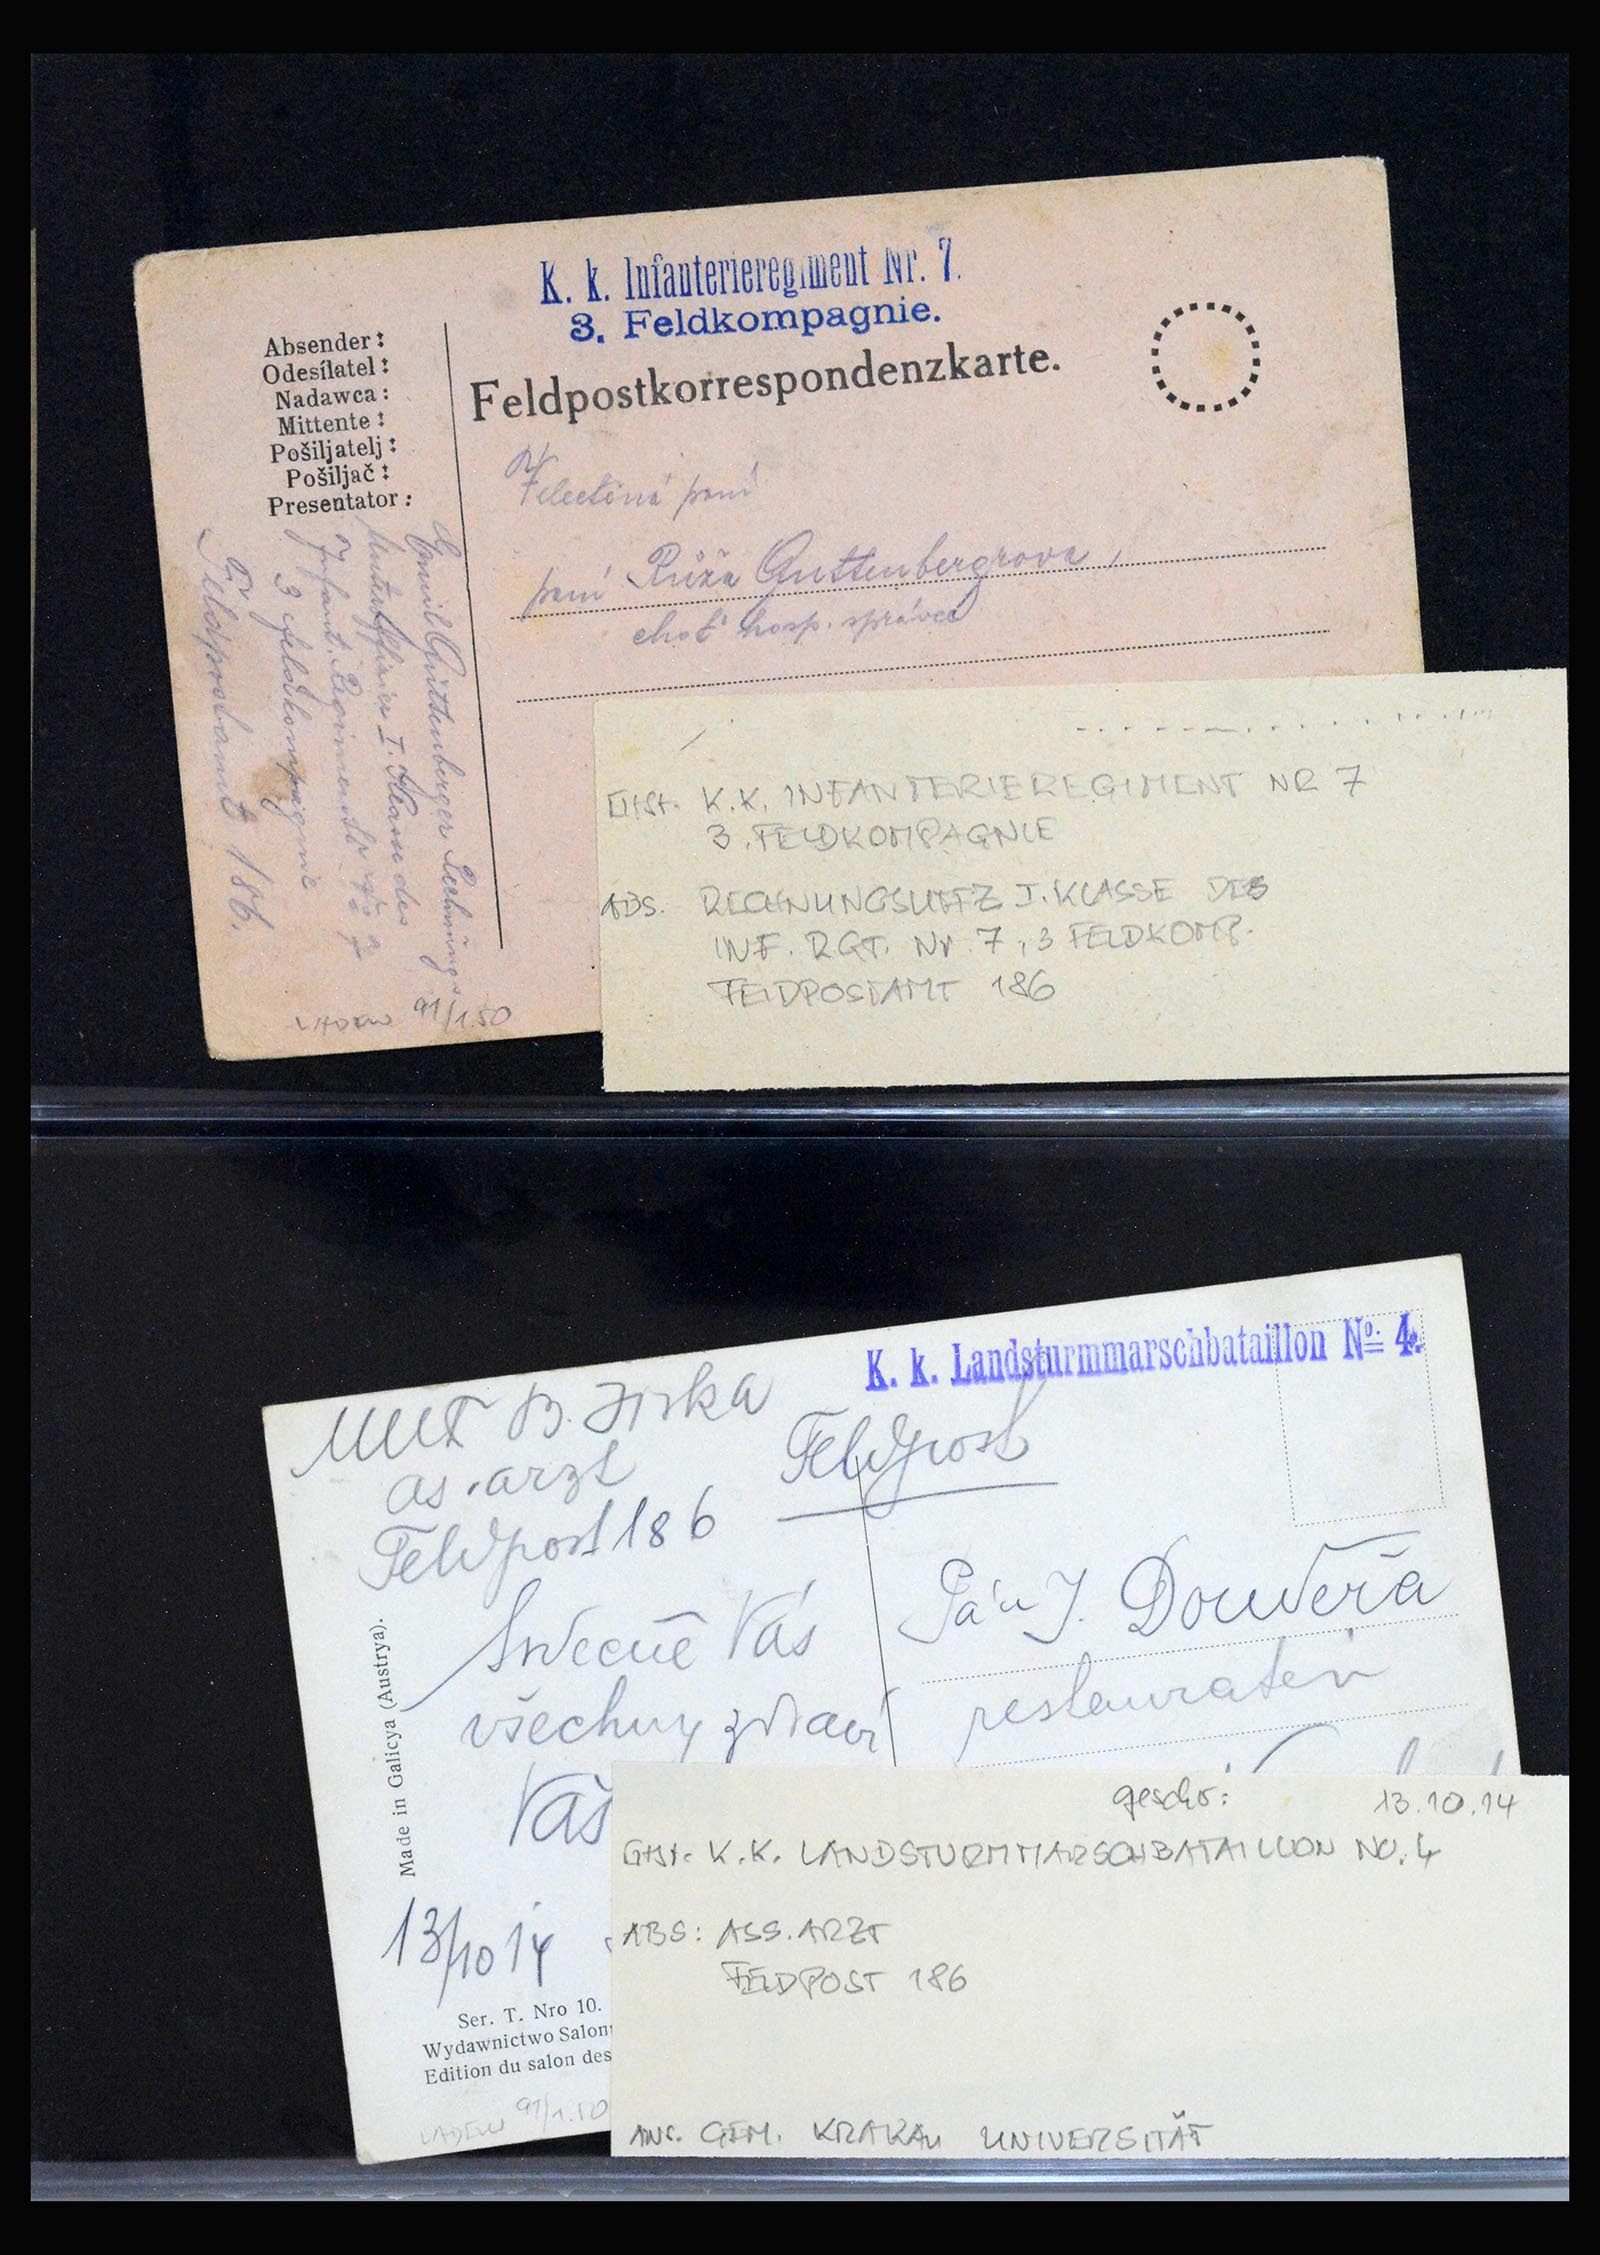 K. k. Infanterieregiment Nr. 7.
3. Feldkompagnie.
Feldpostkorrespondenzkarte.
Absender:
Odesílatel:
Nadawca:
Mittente:
Pošiljatelj:
Pošiljač:
Presentator:
paní
paní Růža Guttenbergrova,
choť hosp. správce
Emil Guttenberger Rechnungs
Unteroffizier I. Klasse des
Infant. Regiments № 7
3 Feldkompagnie
Feldpostamt 186.
LADEN 91/1.50
K.K. INFANTERIEREGIMENT NR 7
3. FELDKOMPAGNIE
ABS. RECHNUNGSUFFZ I. KLASSE DES
INF. RGT. Nr. 7, 3 FELDKOMP.
FELDPOSTAMT 186
K. k. Landsturmmarschbataillon No. 4.
B. Jirka
as. arzt
Feldpost
Feldpost 186
Srdečně Vás
všechny zdraví
Váš
Pán J.
restauratér
Made in Galicya (Austrya).
13/10 14
Ser. T. Nro 10.
Wydawnictwo Salon
Edition du salon des
LADEN 91/1.50
geschr: 13.10.14
K.K. LANDSTURMMARSCHBATAILLON NO. 4
ABS: ASS. ARZT
FELDPOST 186
ANS. GEM. KRAKAU UNIVERSITÄT